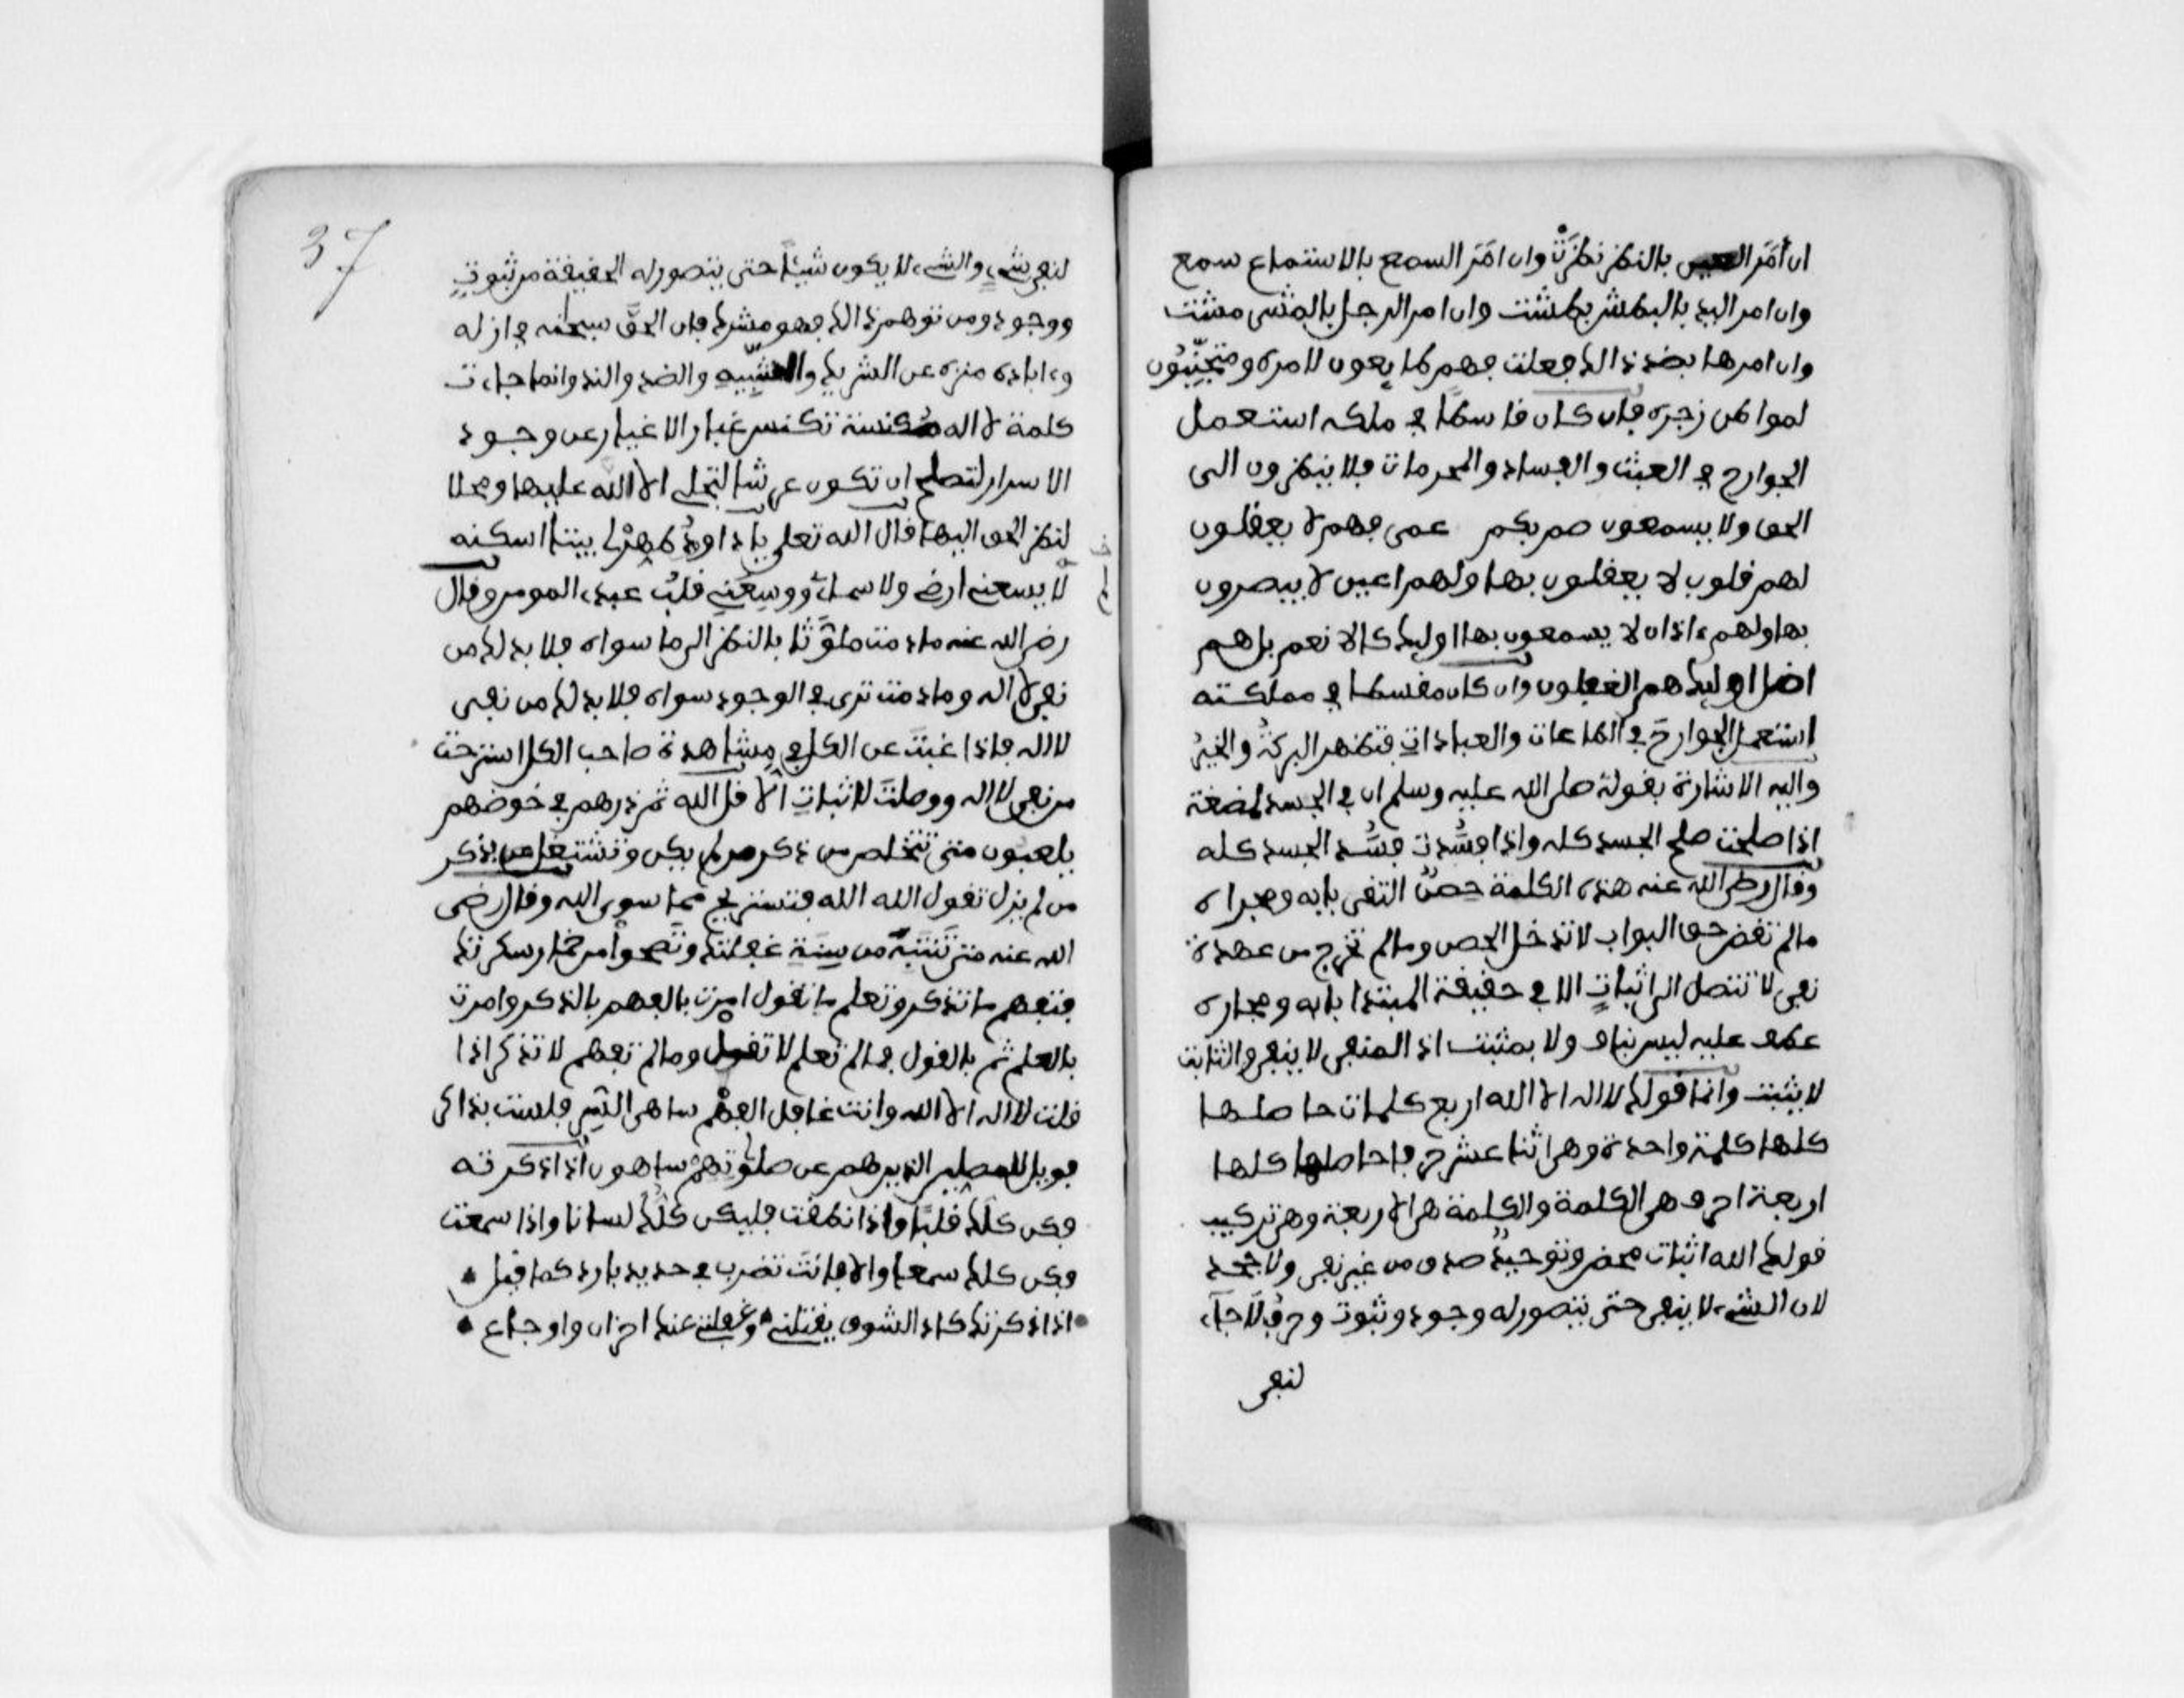 ان أمَرَ العين بالنظر نظرَتْ وان امَرَ السمع بالاستماع سمع
وان امر اليد بالبطش بطشت وان امر الرجل بالمشى مشت
وان امرها بضد ذالك فعلت فهم طايعون لامره ومتجنّبون
لمواطن زجره فان كان قاسطا في ملكه استعمل
الجوارح في العبث والفساد والمحرمات فلا ينظرون الى
الحق ولا يسمعون صم بكم عمى فهم لا يعقلون
لهم قلوب لا يعقلون بها ولهم اعين لا يبصرون
بها ولهم ءاذان لا يسمعون بها اوليك كالانعم بل هم
اضل اوليك هم الغفلون وان كان مقسطا في مملكته
استعمل الجوارحَ في الطاعات والعباداتِ فتظهر البركةُ والخيرُ
واليه الاشارة بقوله صلى الله عليه وسلم ان في الجسد لمضغة
اذا صلحت صلح الجسد كله واذا فسدت فسد الجسد كله
وقال رضى الله عنه هذه الكلمة حصنٌ النفى بابه
مالم تقض حق البواب لا تدخل الحصن ومالم تخرج من عهدة
نفى لا تتصل الى اثباتٍ الا في حقيقة المبتدا بابه
عكف عليه ليس بناف ولا بمثبت اذ المنفى لا ينفى والثابت
لا يثبت وانما قولك لااله الا الله اربع كلمات حاصلها
كلها كلمة واحدة وهى اثنا عشر حرفا حاصلها كلها
اربعة احرف هى الكلمة والكلمة هى الاربعة وهى تركيب
قولك الله اثبات محض وتوحيدٌ صدق من غير نفى ولا جحد
لان الشىء لا ينفى حتى يتصور له وجود وثبوت وحرف لا جاء
لنفى
37
لنفى شىءٍ والشىء لا يكون شيئًا حتى يتصور له الحقيقة من ثبوتٍ
ووجود ومن توهم ذالك فهو مشرك فان الحقّ سبحانه في ازله
وءاباده منزه عن الشريك والشبيه والضد والند وانما جاءت
كلمة لا اله مكنسة تكنس غبار الاغيار عن وجود
الاسرار لتصلح ان تكون عرشا لتجلى الا الله عليها ومحلا
لنظر الحق اليها قال الله تعلى ياداوود طهّرلى بيتا اسكنه
لا يسعنى ارضى ولا سماءى ووسعنى قلب عبدى المومن وقال
رضى الله عنه مادمت ملوثا بالنظر الى ما سواه فلا بد لك من
نفى لا اله ومادمت ترى في الوجود سواه فلا بد لك من نفى
لااله فاذا غبتَ عن الكل في مشاهدة صاحب الكل استرحت
من نفى لااله ووصلت لاثباتِ الا قل الله ثم ذرهم في خوضهم
يلعبون متى تتخلص من ذكر من لم يكن وتشتغل بذكر
من لم يزل تقول الله الله فتستريح مما سوى الله وقال رضى
الله عنه متى تنتبه من سِنَةِ غفلتك وتصحوا من خمار سكرتك
فتفهم ما تذكر وتعلم ما تقول امرت بالفهم بالذكر وامرت
بالعلم ثم بالقول فمالم تعلم لا تقول ومالم تفهم لا تذكر اذا
قلت لااله الا الله وانت غافل الفهم ساهى السر فلست بذاكر
فويل للمصلين الذين هم عن صلوتهم ساهون اذا ذكرته
فكن كلك قلبًا واذا نطقت فليكن كلك لسانا واذا سمعت
فكن كلك سمعا والا فانت تضرب في حديد بارد كما قيل
اذا ذكرتك كاد الشوق يقتلنى وغفلتى عنك احزان واوجاع